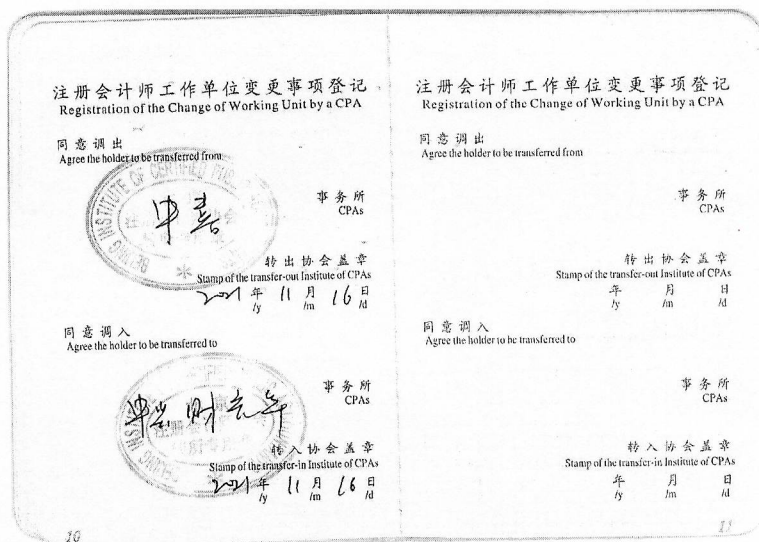 注册会计师工作单位变更事项登记
Registration of the Change of Working Unit by a CPA
同意调出
Agree the holder to be transferred from
BEIJING INSTITUTE OF CERTIFIED PUB
中喜
事务所
CPAs
转出协会盖章
Stamp of the transfer-out Institute of CPAs
2021 年 11 月 16 日
/y /m /d
同意调入
Agree the holder to be transferred to
事务所
CPAs
转入协会盖章
Stamp of the transfer-in Institute of CPAs
2021 年 11 月 16 日
/y /m /d
10
注册会计师工作单位变更事项登记
Registration of the Change of Working Unit by a CPA
同意调出
Agree the holder to be transferred from
事务所
CPAs
转出协会盖章
Stamp of the transfer-out Institute of CPAs
年 月 日
/y /m /d
同意调入
Agree the holder to be transferred to
事务所
CPAs
转入协会盖章
Stamp of the transfer-in Institute of CPAs
年 月 日
/y /m /d
11